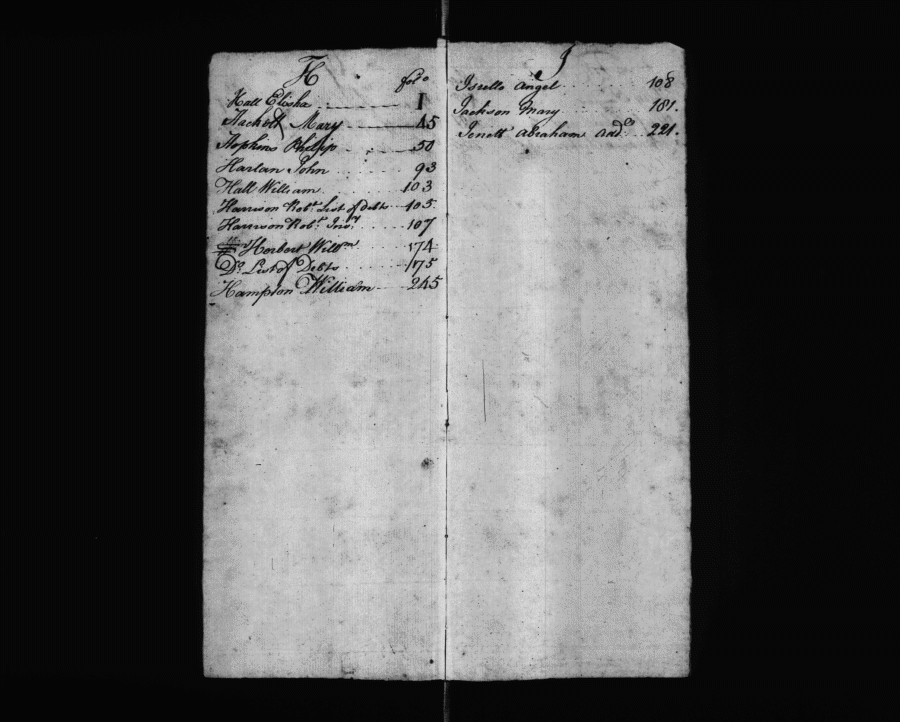 H
folo
Hall Elisha 1
Hackett Mary 45
Hopkins Phillip 50
Harlan John 93
Hall William 103
Harrison Robt. List of debts 105
Harrison Robt. Invy. 107
Herbert Willm 174
Do. List of Debts 175
Hampton William 245
J
Isello Angel 108
Jackson Mary 181.
Jenett Abraham 221.